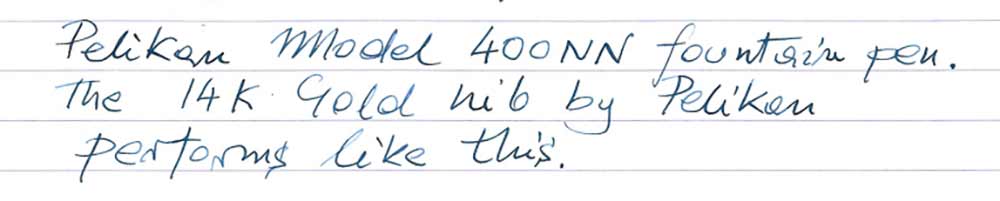 Pelikan Model 400NN fountain pen.
The 14K Gold nib by Pelikan
performs like this.